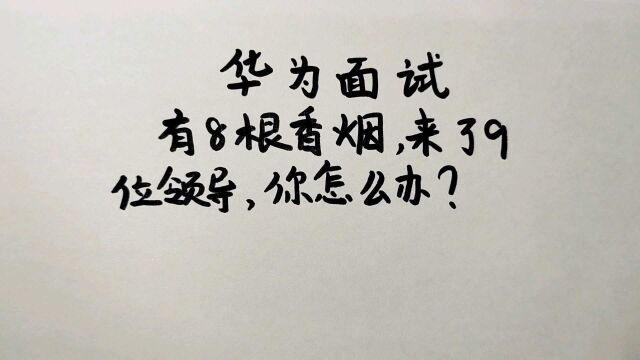 华为面试
有8根香烟,来了9
位领导,你怎么办?